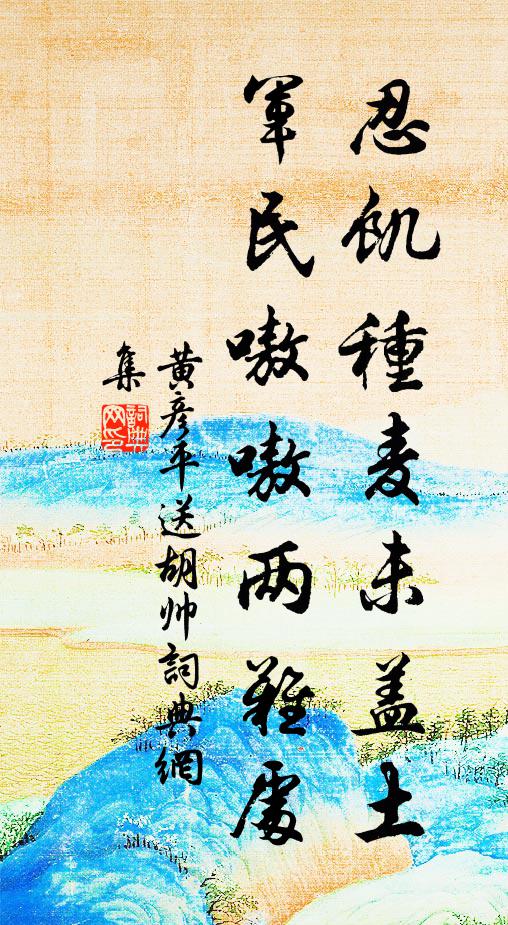 忍飢種麦未盖土
軍民嗷嗷两難處
黄彦平送胡帅詞典網
集
詞典
网印